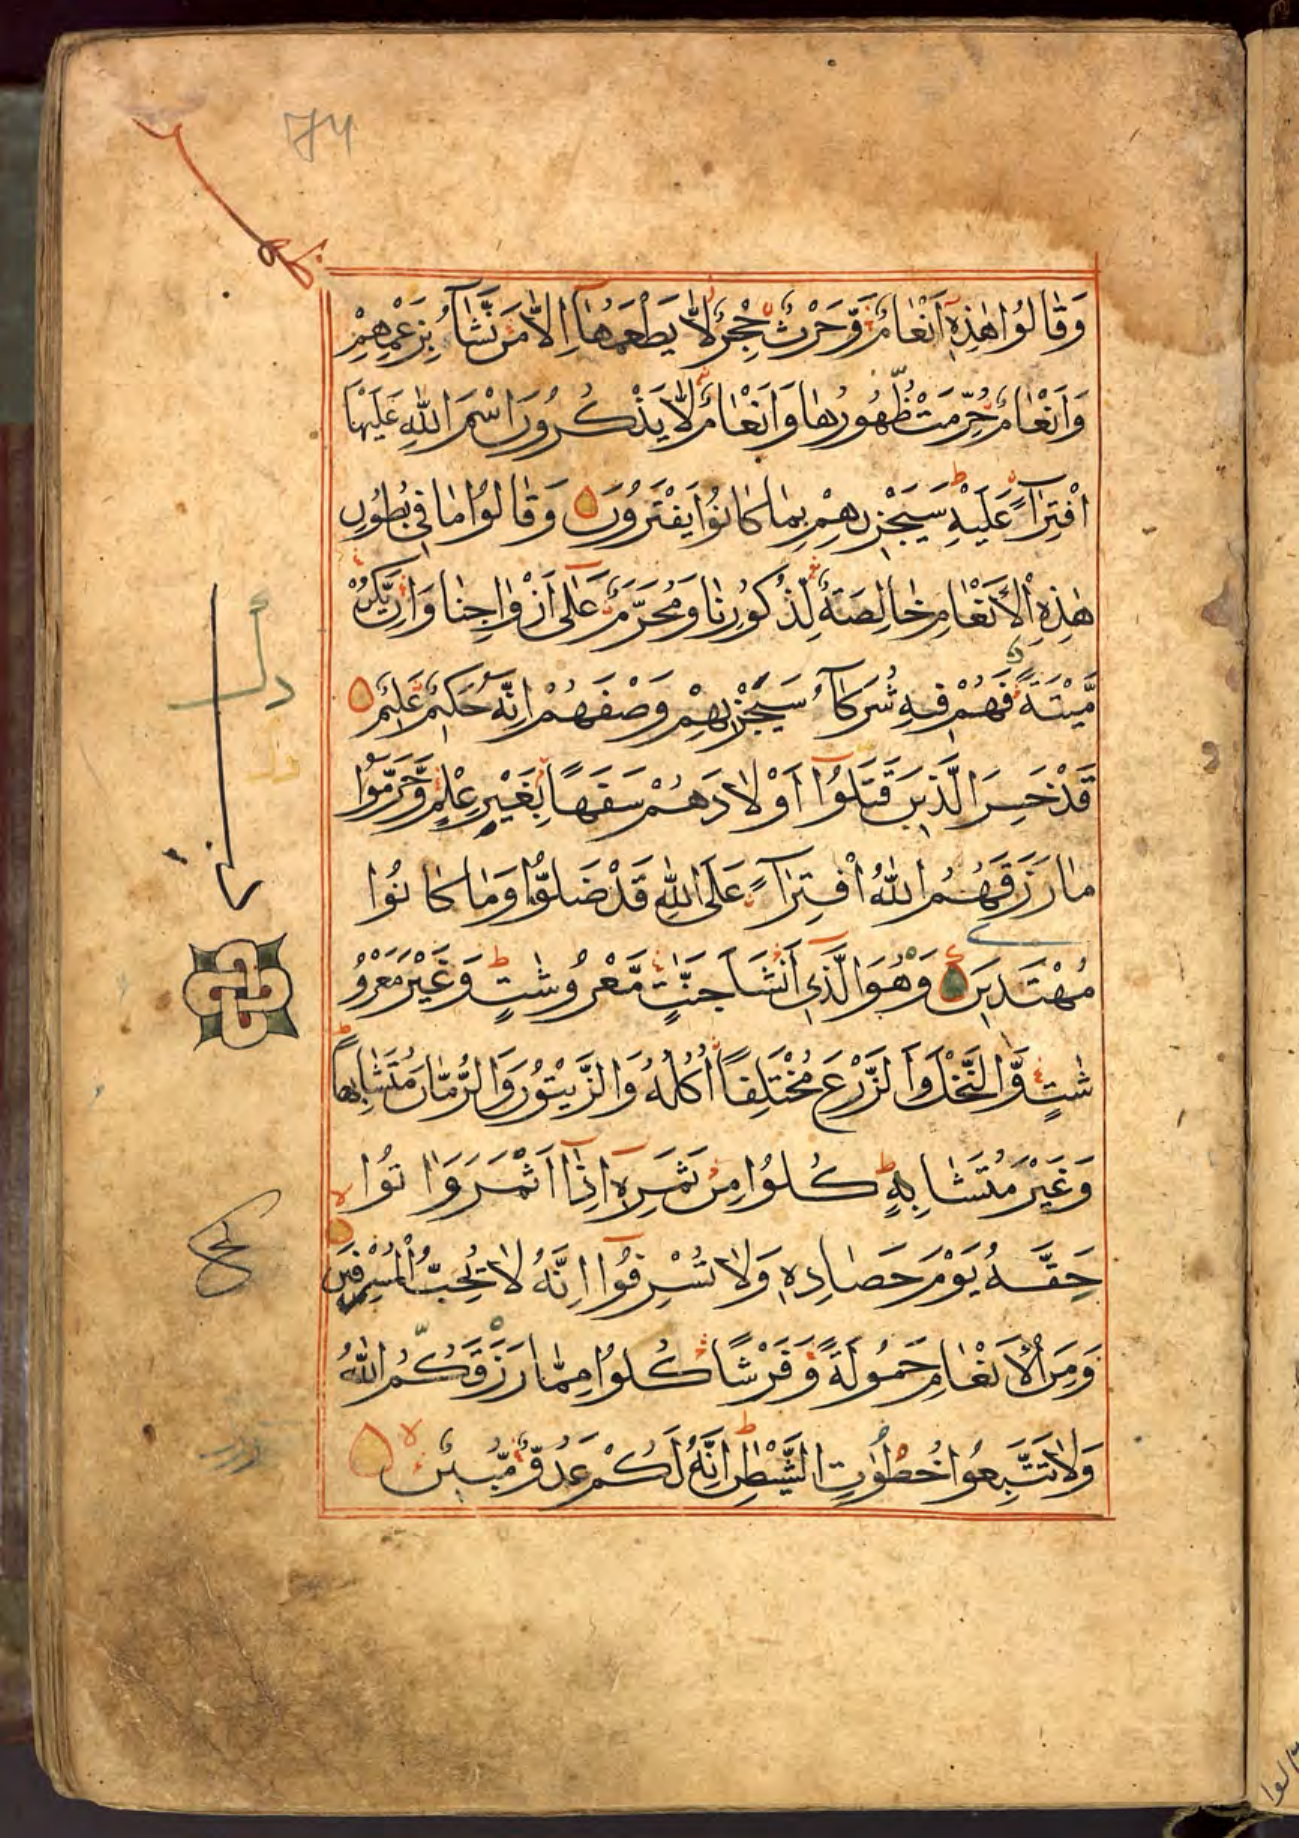 وَقَالُوا هٰذِهٖٓ اَنْعَامٌ وَّحَرْثٌ حِجْرٌ لَّا يَطْعَمُهَآ اِلَّا مَنْ نَّشَآءُ بِزَعْمِهِمْ
وَاَنْعَامٌ حُرِّمَتْ ظُهُورُهَا وَاَنْعَامٌ لَّا يَذْكُرُونَ اسْمَ اللّٰهِ عَلَيْهَا
افْتِرَآءً عَلَيْهِ سَيَجْزِيهِمْ بِمَا كَانُوْا يَفْتَرُوْنَ وَقَالُوْا مَا فِي بُطُوْنِ
هٰذِهِ الْاَنْعَامِ خَالِصَةٌ لِّذُكُوْرِنَا وَمُحَرَّمٌ عَلٰٓى اَزْوَاجِنَا وَاِنْ يَّكُنْ
مَّيْتَةً فَهُمْ فِيهِ شُرَكَآءُ سَيَجْزِيهِمْ وَصْفَهُمْ اِنَّهٗ حَكِيْمٌ عَلِيْمٌ
قَدْ خَسِرَ الَّذِينَ قَتَلُوْٓا اَوْلَادَهُمْ سَفَهًا بِغَيْرِ عِلْمٍ وَّحَرَّمُوْا
مَا رَزَقَهُمُ اللّٰهُ افْتِرَآءً عَلَى اللّٰهِ قَدْ ضَلُّوْا وَمَا كَانُوْا
مُهْتَدِينَ وَهُوَ الَّذِي اَنْشَاَ جَنّٰتٍ مَّعْرُوْشٰتٍ وَّغَيْرَ مَعْرُوْ
شٰتٍ وَّالنَّخْلَ وَالزَّرْعَ مُخْتَلِفًا اُكُلُهٗ وَالزَّيْتُوْنَ وَالرُّمَّانَ مُتَشَابِهًا
وَّغَيْرَ مُتَشَابِهٍ كُلُوْا مِنْ ثَمَرِهٖٓ اِذَآ اَثْمَرَ وَاٰتُوْا
حَقَّهٗ يَوْمَ حَصَادِهٖ وَلَا تُسْرِفُوْٓا اِنَّهٗ لَا يُحِبُّ الْمُسْرِفِيْنَ
وَمِنَ الْاَنْعَامِ حَمُوْلَةً وَّفَرْشًا كُلُوْا مِمَّا رَزَقَكُمُ اللّٰهُ
وَلَا تَتَّبِعُوْا خُطُوٰتِ الشَّيْطٰنِ اِنَّهٗ لَكُمْ عَدُوٌّ مُّبِيْنٌ